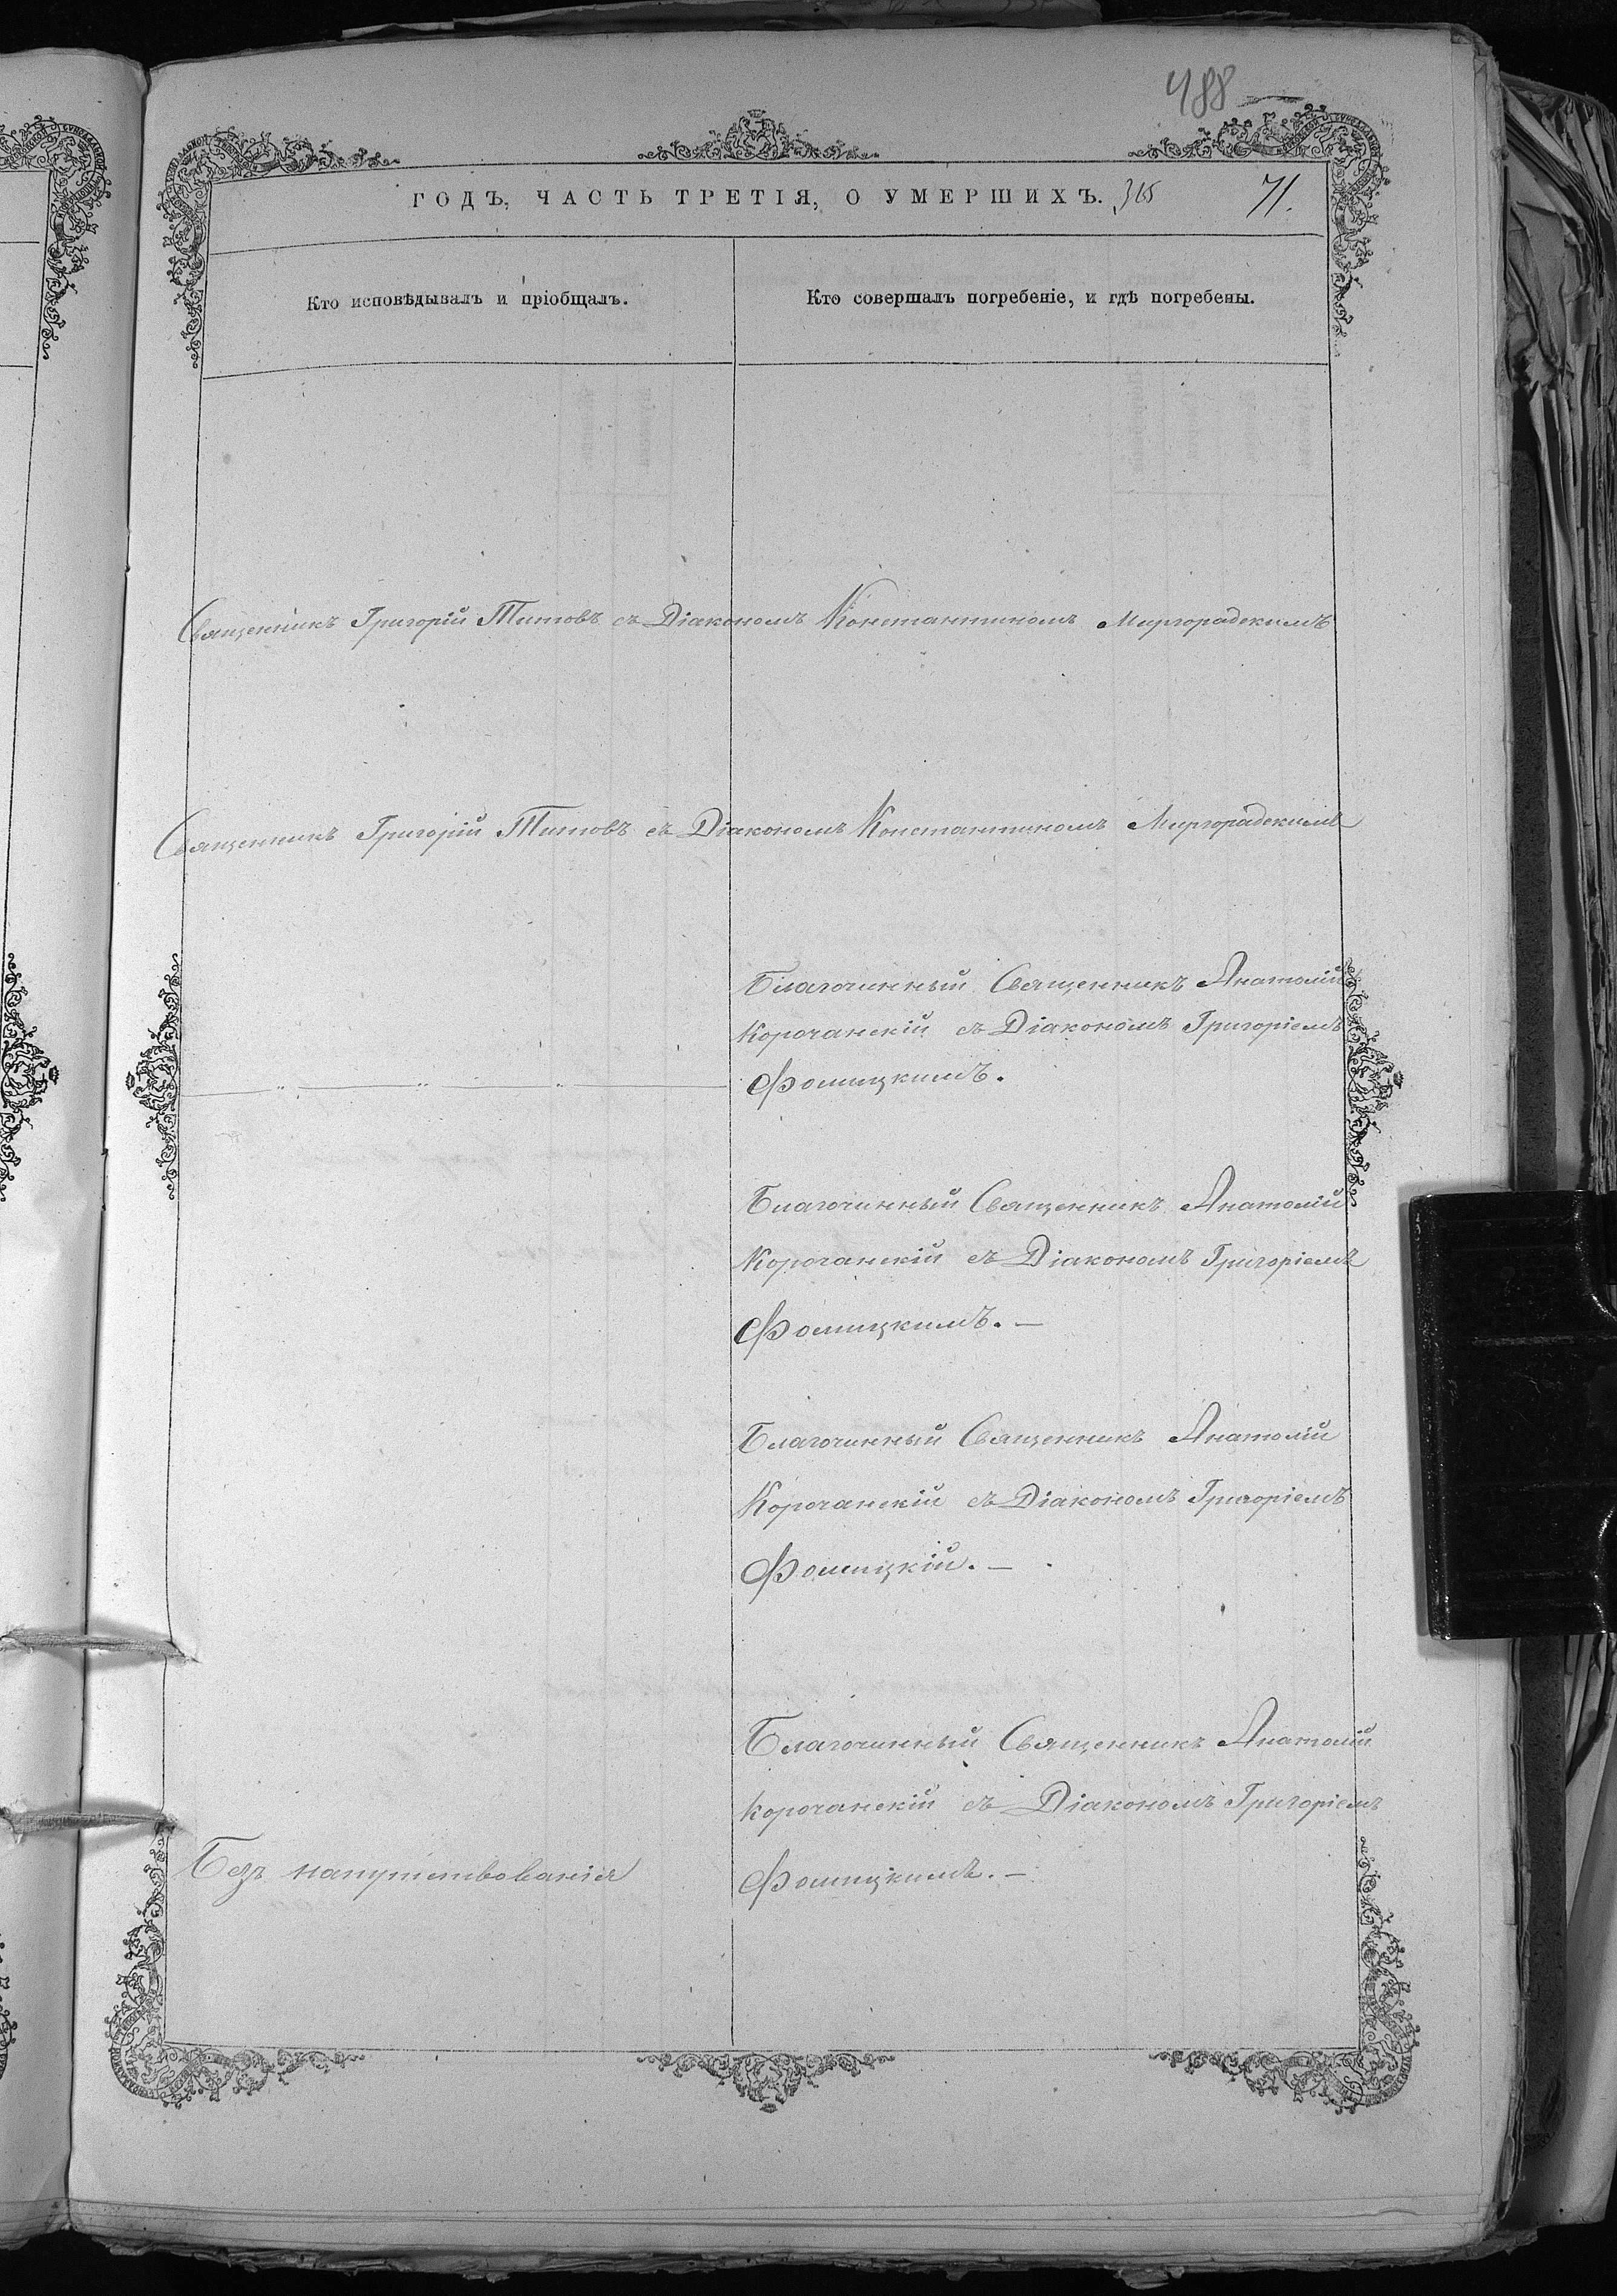 488
ГОДЪ, ЧАСТЬ ТРЕТІЯ, О УМЕРШИХЪ. 71.
Кто исповѣдывалъ и пріобщалъ.
Кто совершалъ погребеніе, и гдѣ погребены.
Священникъ Григорій Титовъ съ Діакономъ Константиномъ Миргорадскимъ
Священникъ Григорій Титовъ съ Діакономъ Константиномъ Миргорадскимъ
Благочинный Священникъ Анатолій
Корочанскій съ Діакономъ Григоріемъ
Фомицкимъ.
Благочинный Священникъ Анатолій
Корочанскій съ Діакономъ Григоріемъ
Фомицкимъ. —
Благочинный Священникъ Анатолій
Корочанскій съ Діакономъ Григоріемъ
Фомицкій. —
Благочинный Священникъ Анатолій
Корочанскій съ Діакономъ Григоріемъ
Безъ напутствованія
Фомицкимъ. —